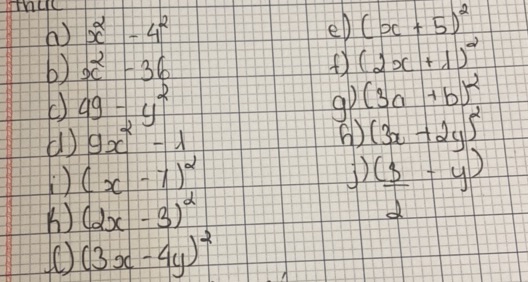 thức
a) x² - 4²
b) x² - 36
c) 49 - y²
d) 9x² - 1
i) (x - 7)²
k) (2x - 3)²
l) (3x - 4y)²
e) (x + 5)²
f) (2x + 1)²
g) (3a + b)²
h) (3x + 2y)²
j) (3/2 - y)